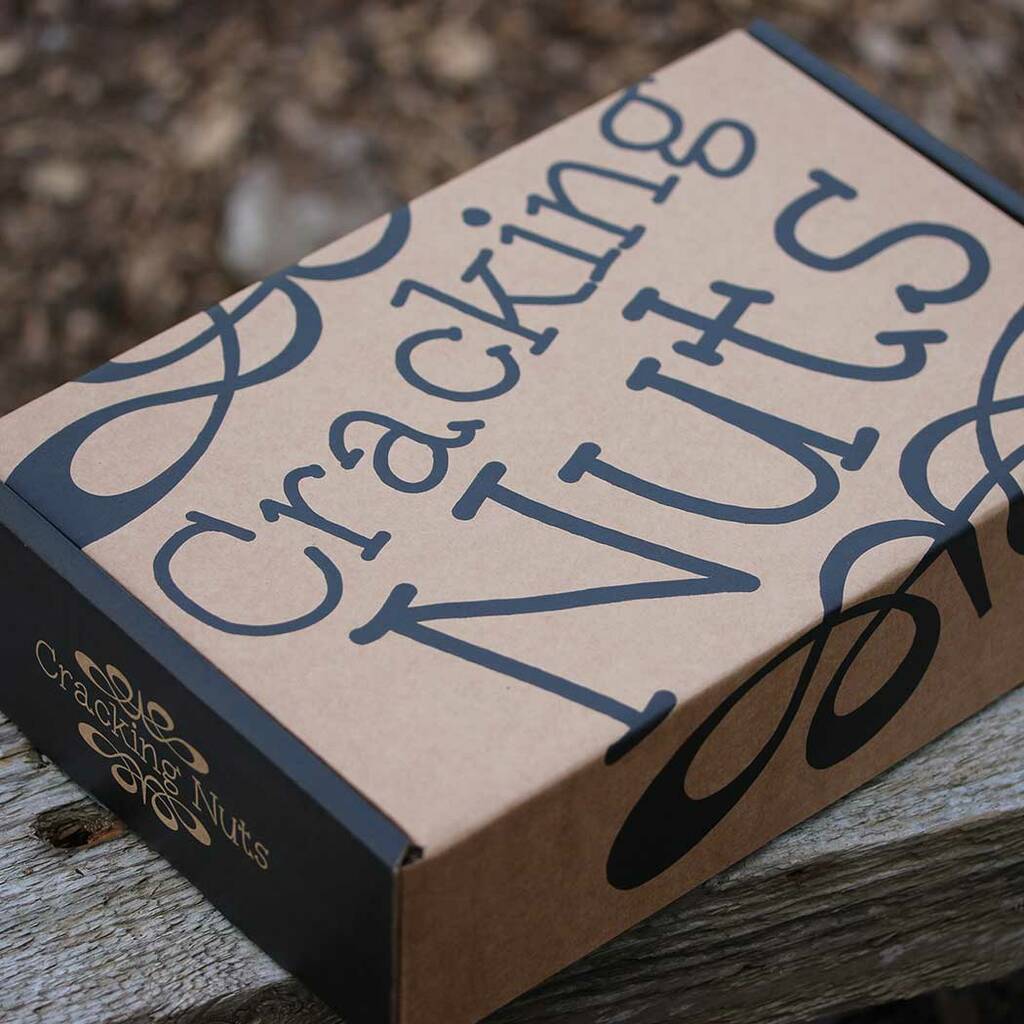 Cracking
Nuts
Cracking Nuts